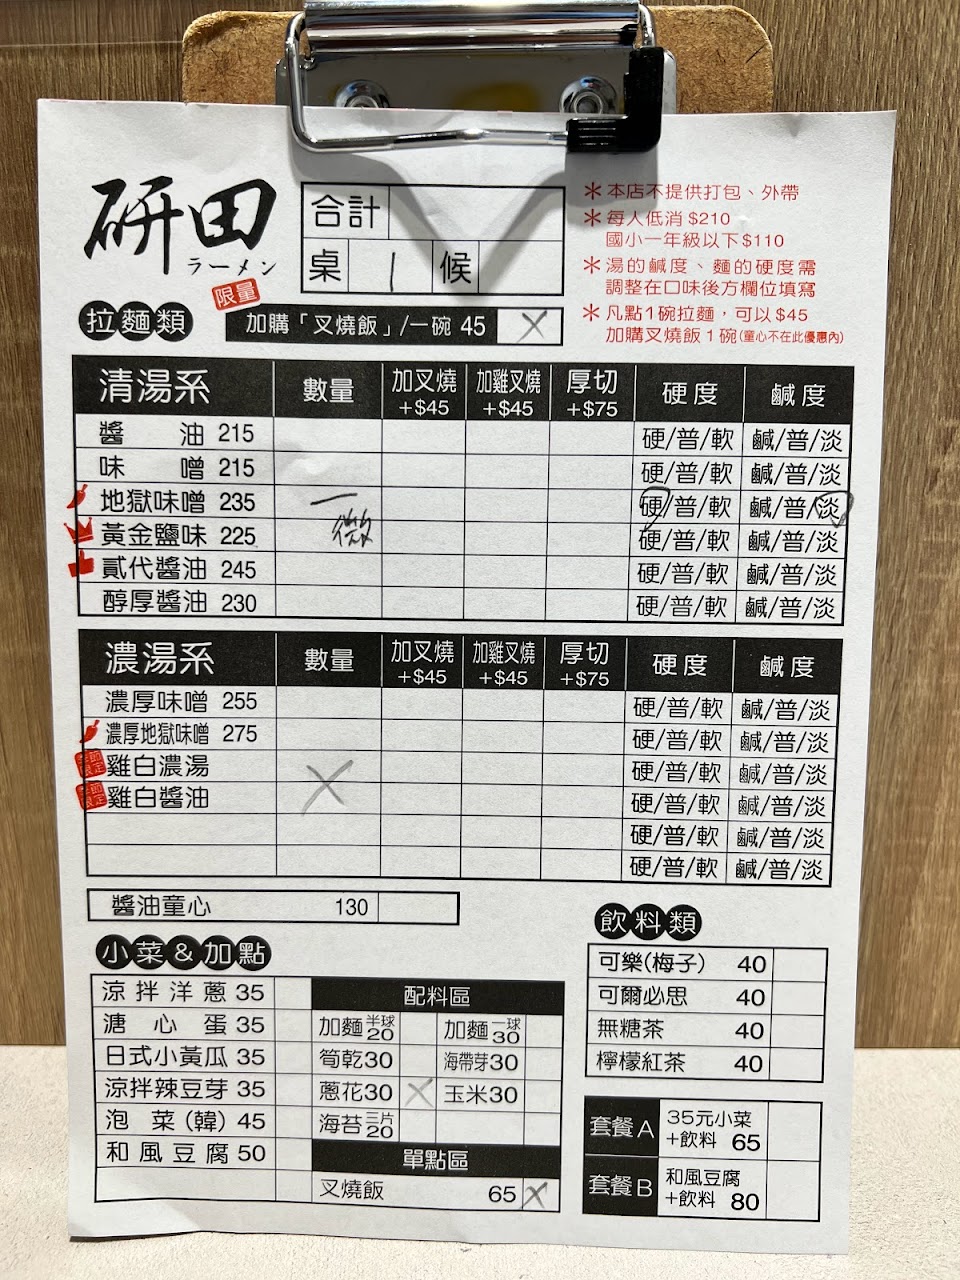 研田
ラーメン
合計
桌 1 候
＊本店不提供打包、外帶
＊每人低消 $210
國小一年級以下$110
＊湯的鹹度、麵的硬度需
調整在口味後方欄位填寫
＊凡點1碗拉麵，可以 $45
加購叉燒飯 1 碗(童心不在此優惠內)
拉麵類
限量
加購「叉燒飯」/一碗 45 X
清湯系 數量 加叉燒+$45 加雞叉燒+$45 厚切+$75 硬度 鹹度
醬油 215 硬/普/軟 鹹/普/淡
味噌 215 硬/普/軟 鹹/普/淡
地獄味噌 235 一 硬/普/軟 鹹/普/淡
黃金鹽味 225 微 硬/普/軟 鹹/普/淡
貳代醬油 245 硬/普/軟 鹹/普/淡
醇厚醬油 230 硬/普/軟 鹹/普/淡
濃湯系 數量 加叉燒+$45 加雞叉燒+$45 厚切+$75 硬度 鹹度
濃厚味噌 255 硬/普/軟 鹹/普/淡
濃厚地獄味噌 275 硬/普/軟 鹹/普/淡
季節限定 雞白濃湯 硬/普/軟 鹹/普/淡
季節限定 雞白醬油 X 硬/普/軟 鹹/普/淡
硬/普/軟 鹹/普/淡
硬/普/軟 鹹/普/淡
醬油童心 130
小菜&加點
涼拌洋蔥 35
溏心蛋 35
日式小黃瓜 35
涼拌辣豆芽 35
泡菜(韓) 45
和風豆腐 50
配料區
加麵半球20 加麵一球30
筍乾30 海帶芽30
蔥花30 X 玉米30
海苔三片20
單點區
叉燒飯 65 X
飲料類
可樂(梅子) 40
可爾必思 40
無糖茶 40
檸檬紅茶 40
套餐A 35元小菜+飲料 65
套餐B 和風豆腐+飲料 80